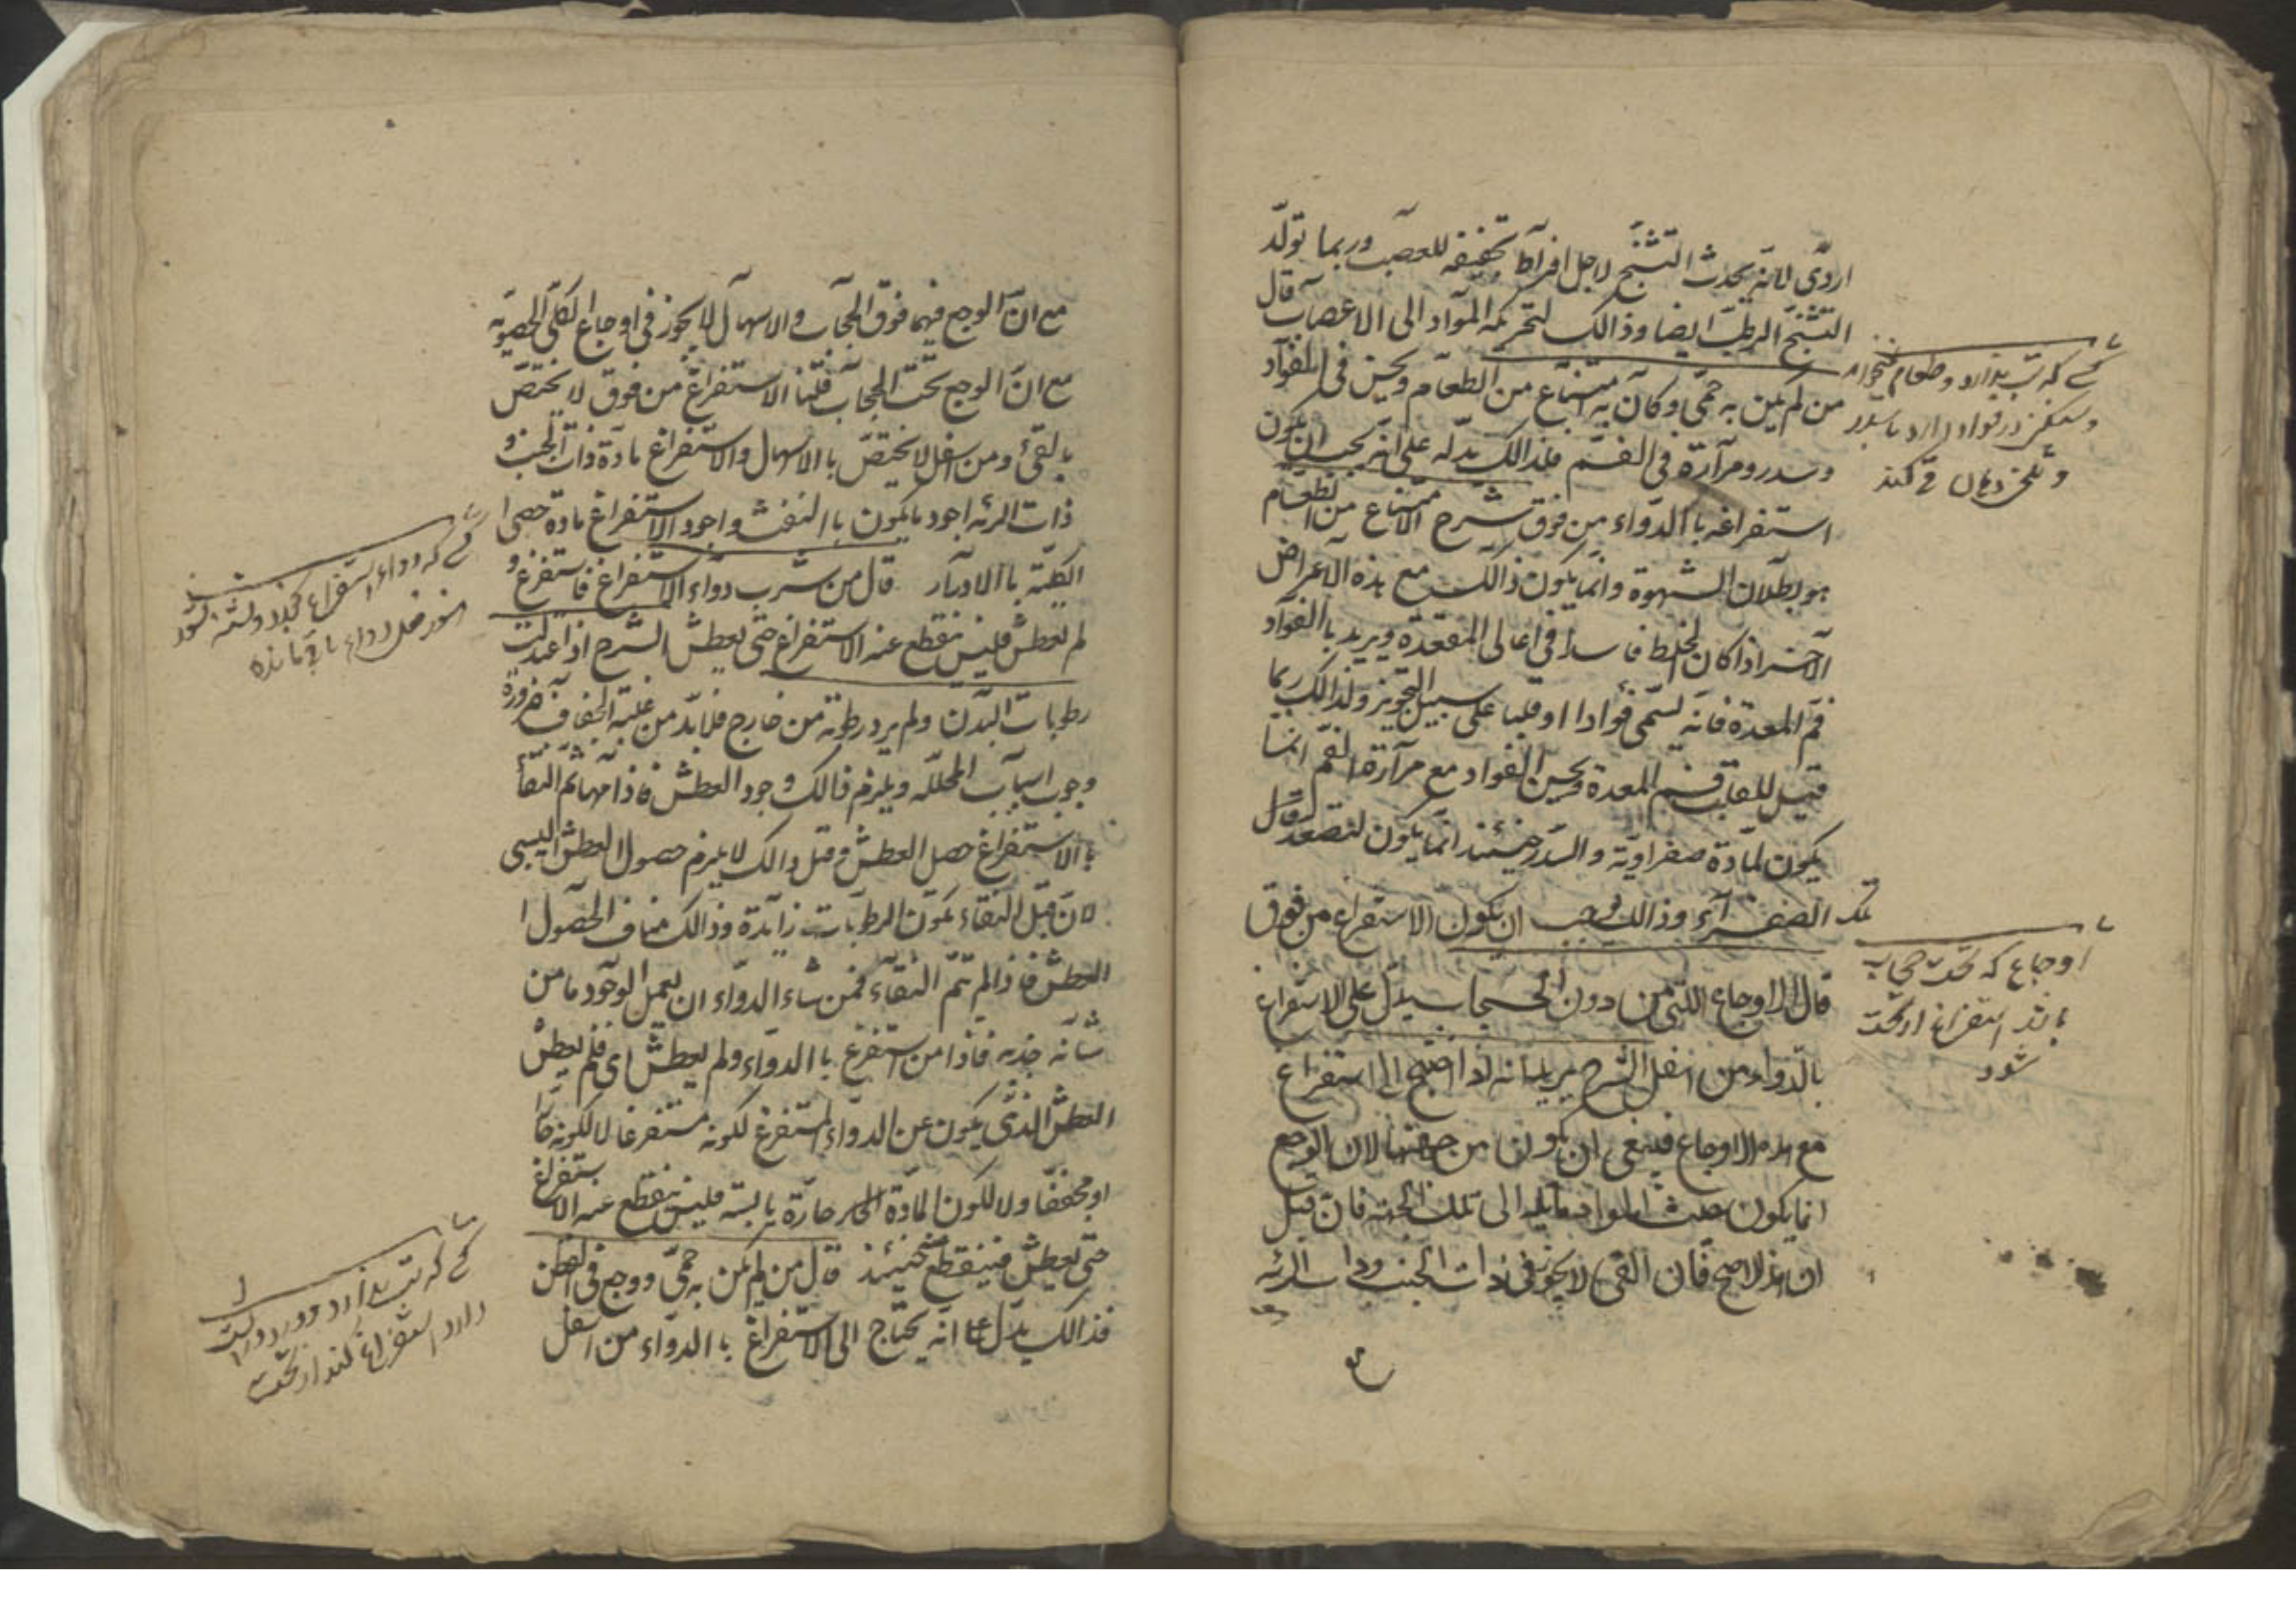 اردّى لانّه يحدث التشنّج لاجل افراط تجفيفه للعصب وربما تولّد
التشنّج الرطب ايضا وذالك لتحريكه المواد الى الاعصاب قال
من لم يكن به حمّى وكان به امتناع من الطعام ونخس فى الفواد
وسدر ومرارة فى الفم فذالك يدلّه على انّه يجب ان يكون
استفراغه باالدواء من فوق شرح الامتناع من الطعام
هو بطلان الشهوة وانّما يكون ذالك مع هذه الاعراض
الآخر اذا كان الخلط فاسدا فى اعالى المعدة ويريد باالفواد
فم المعدة فانّه يسمّى فوادا او قلبا على سبيل التجويز ولذالك ربما
قيل للقلب فم المعدة ونخس الفواد مع مرارة الفم انّما
يكون لمادة صفراويّة والسدر حينئذ انّما يكون لتصعد
تلك الصفراء وذالك يوجب ان يكون الاستفراغ من فوق
قال الاوجاع اللتى من دون الحجاب يدلّ على الاستفراغ
باالدواء من اسفل الشرح يريد انه اذا احتيج الى استفراغ
مع هذه الاوجاع فينبغى ان يكون من جهتها لان الوجع
انما يكون حيث المواد مايله الى تلك الجهه فان قيل
ان هذا لا صح فان القى لا يجوز فى ذات الجنب وذات الريه
كسے كه تب ندارد وطعام نخواهد
ونخس در فواد دارد با سدر
وتلخى دهان قے كند
اوجاع كه تحت حجاب
باشد استفراغ از تحت
شود
مع انّ الوجع فيهما فوق الحجاب والاسهال لا يجوز فى اوجاع الكلى الحصويّه
مع انّ الوجع تحت الحجاب قلنا الاستفراغ من فوق لا يختصّ
بالقىء ومن اسفل لا يختصّ باالاسهال والاستفراغ مادة ذات الجنب و
ذات الريه اجود ما يكون باالنفث واجود الاستفراغ مادة حصى ا
الكلية باالادرار قال من شرب دواء الاستفراغ فاستفرغ و
لم يعطش فليس ينقطع عنه الاستفراغ حتى يعطش الشرح اذا
رطوبات البدن ولم يرد رطوبة من خارج فلا بدّ من غلبة الجفاف ضرورة
وجوب اسباب المحلّله ويلزم ذالك وجود العطش فاذا مهما تم النقأ
باالاستفراغ حصل العطش وقبل ذالك لا يلزم حصول العطش اليبسى
لانّ قبل النقاء يكون الرطوبات زايدة وذالك مناف لحصول ا
العطش فاذا لم يتمّ النقاء فمن شاء الدواء ان يعمل الوجود ما من
شأنه جذبه فاذا من استفرغ باالدواء ولم يعطش اى فلم يعطش
العطش الذى يكون عن الدواء المستفرغ لكونه مستفرغا لا لكونه حارّا
او مجففا ولا لكون المادة حارّة يابسة فليس ينقطع عنه الاستفراغ
حتى يعطش فينقطع حينئذ قال من لم يكن به حمّى ووجع فى البطن
فذالك يدلّ على انّه يحتاج الى الاستفراغ باالدواء من اسفل
كسے كه دواء استفراغ وتشنه نشود
هنوز دواء باقى مانده
كسے كه تب ندارد ودرد
دارد استفراغ كند از تحت